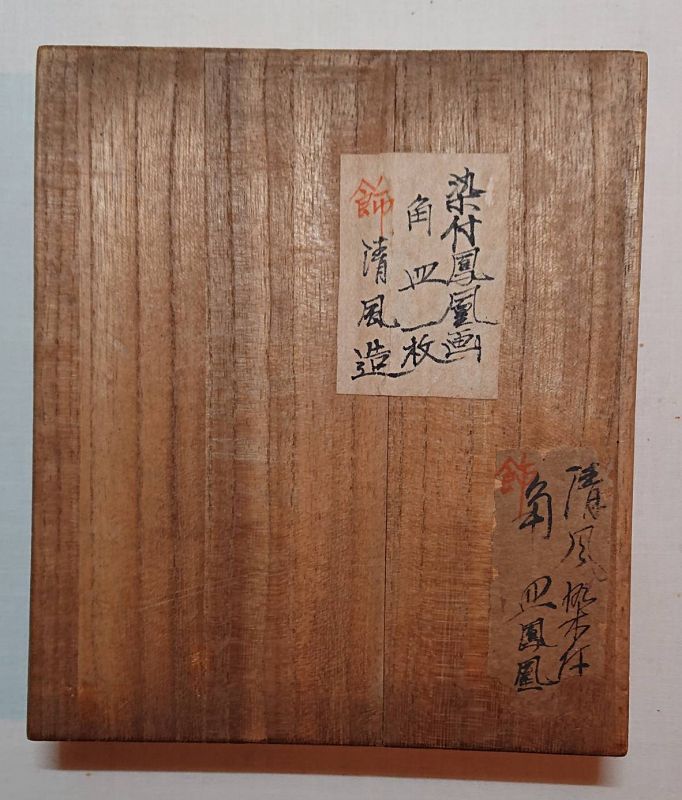 染付鳳凰画
角皿一枚
飾 清風造
清風染付
角皿鳳凰
飾